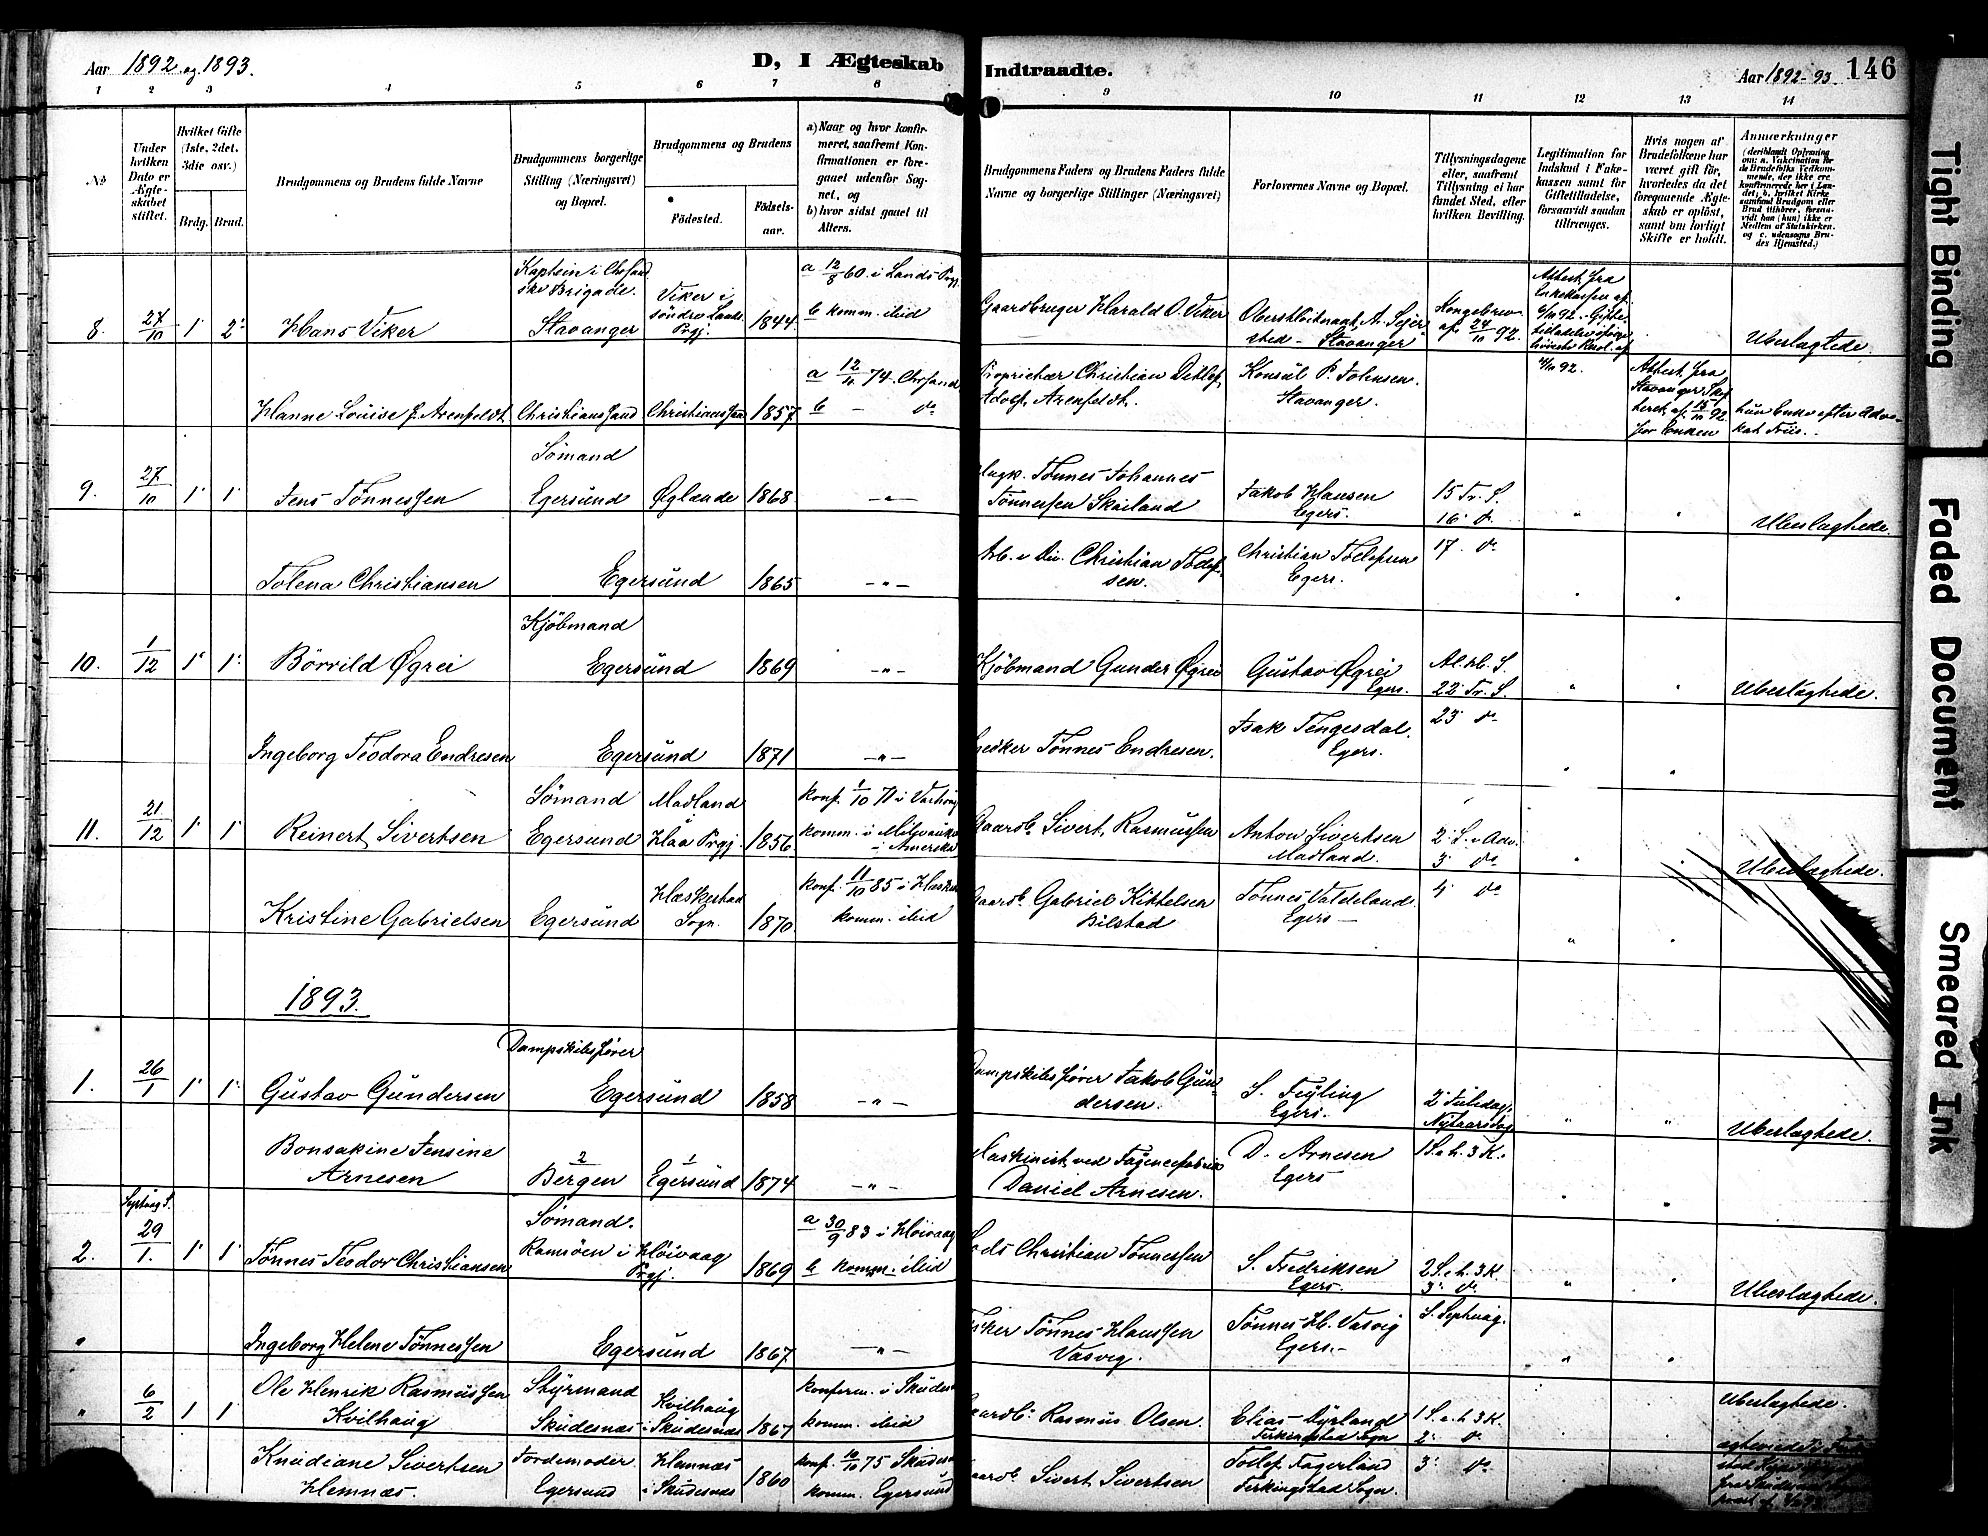 Aar 1892 og 1893.
D, I Ægteskab Indtraadte.
Aar 1892-93
146
1 2 3 4 5 6 7 8 9 10 11 12 13 14
No
Under hvilken Dato er Ægteskabet stiftet.
Hvilket Gifte (1ste, 2det, 3die osv.)
Brdg. Brud.
Brudgommens og Brudens fulde Navne
Brudgommens borgerlige Stilling (Næringsvei) og Bopæl.
Brudgommens og Brudens
Födested. Födselsaar.
a) Naar og hvor konfirmeret, saafremt Konfirmationen er foregaaet udenfor Sognet, og
b) hvor sidst gaaet til Alters.
Brudgommens Faders og Brudens Faders fulde Navne og borgerlige Stillinger (Næringsvei)
Forlovernes Navne og Bopæl.
Tillysningsdagene eller, saafremt Tillysning ei har fundet Sted, efter hvilken Bevilling.
Legitimation for Indskud i Enkekassen samt for Giftetilladelse, forsaavidt saadan tiltrænges.
Hvis nogen af Brudefolkene har været gift før, hvorledes da det foregaaende Ægteskab er oplöst, samt om lovligt Skifte er holdt.
Anmærkninger
8. 27/10 1 2 Hans Viker
Stavanger
Viker i söndre Lands Prgj.
1844
a 12/8 60 i Lands Prgj.
b komm. ibid
Gaardbruger Harald O. Viker
Oberstløitnant A. Sejersted - Stavanger
Kongebrev af 24/10 92.
Ubeslægtede.
Hanne Louise f. Arenfeldt
Christianssand Christianssand 1857
a 12/11 74. Chrsand
b - do
Proprietær Christian Detlef Adolf Arenfeldt.
Konsul P. Johnsen. Stavanger.
Attest fra Stavanger
for Enken
hun Enke efter Advokat Friis.
9. 27/10 1 1 Jens Tönnessen
Sømand Egersund Øglænde 1868 -"-
Tönnes Johannes Tönnessen Skailand
Jakob Hansen Egers.
15 Tr. S.
16 do
" "
Ubeslægtede.
Tolena Christiansen
Egersund 1865 -"-
Christian Toelefsen Egers.
17. do
10. 1/12 1 1 Börrild Øgrei
Kjöbmand Egersund 1869 -"-
Kjöbmand Gunder Øgrei
Gustav Øgrei Egers.
Al. H. S.
22 Tr. S.
" "
Ubeslægtede.
Ingeborg Teodora Endresen
Egersund 1871 -"-
Tönnes Endresen.
Isak Tengesdal. Egers.
23 do
11. 21/12 1 1 Reinert Sivertsen
Sømand Egersund
Madland Haa Prgj. 1856
konf. 1/10 71 i Varhoug
komm. i Milwauke i Amerika
Gaardb. Sivert Rasmussen
Anton Sivertsen Madland.
2 S. i Adv.
3 do
Ubeslægtede.
Kristine Gabrielsen
Egersund
Heskestad Sogn. 1870
konf. 11/10 85 i Heskest
komm. ibid
Gaardb. Gabriel Kittelsen Bilstad
Tönnes Vatleland. Egers -
4 do
1893.
1. 26/1 1 1 Gustav Gundersen
Dampskibsfører Egersund 1858 -"-
Dampskibsfører Jakob Gundersen.
S. Feyling Egers.
2 Juledag.
Nytaarsdag
Ubeslægtede.
Bonsakine Jensine Arnesen
2 Bergen 1 Egersund 1874 -"-
Maskinist ved Fayencefabrik Daniel Arnesen.
D. Arnesen Egers
1 S. e. h. 3 K.
Septuag S.
2. 29/1. 1 1 Tönnes Teodor Christiansen
Sømand. Ramsöen i Höivaag Prgj. 1869
a 30/9 83 i Höivaag
b komm. ibid
Lods Christian Tönnessen
S. Fredriksen Egers.
2 S. e. h. 3 K.
3 do
Ubeslægtede.
" Ingeborg Helene Tönnessen
Egersund 1867 -"-
Fisker Tönnes Hanssen Vasvig.
Tönnes H. Vasvig Egers.
S. Septuag.
" 6/2 1 1 Ole Henrik Rasmussen Kvilhaug
Styrmand Skudesnæs
Kvilhaug i Skudesnæs 1867
konferm. i Skudes
komm. ibid
Gaardb. Rasmus Olsen.
Elias Dyrland Ferkingstad Sogn
1 S. e. h. 3 K.
2 do
Ubeslægtede.
Knudiane Sivertsen Hemnæs.
Jordemoder. Egersund
Hemnæs i Skudesnæs 1860
konf. 10/10 75 Skudesn
komm. Egersund
Gaardb. Sivert Sivertsen
Toelef Fagerland Ferkingstad Sogn.
3 do
Tight Binding
Faded Document
Smeared Ink